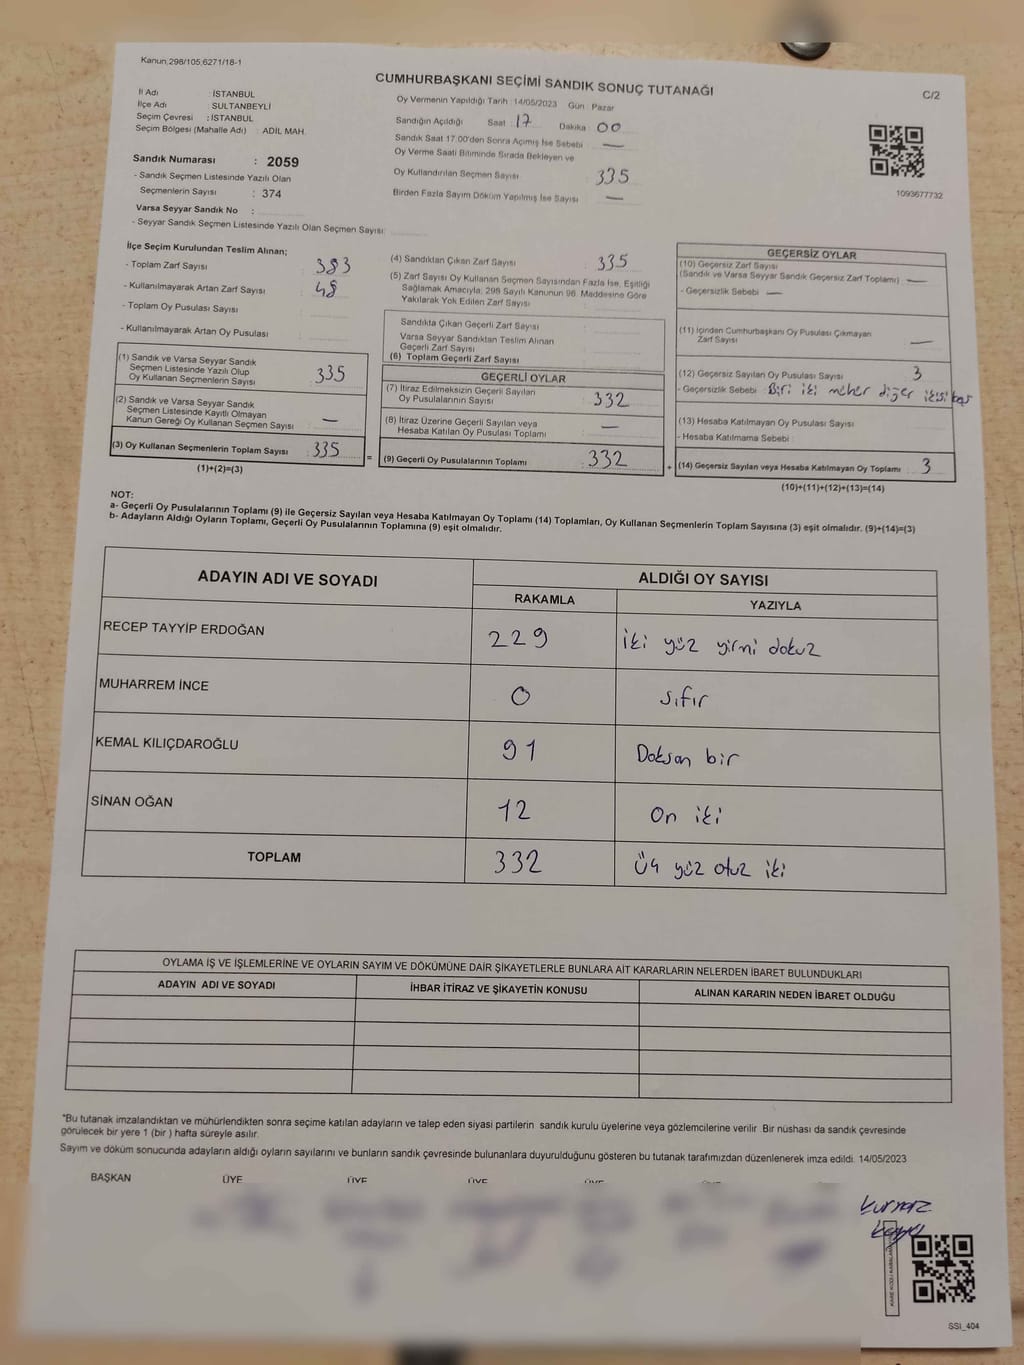 Kanun.298/105,6271/18-1
CUMHURBAŞKANI SEÇİMİ SANDIK SONUÇ TUTANAĞI
C/2
İl Adı İSTANBUL
İlçe Adı SULTANBEYLİ
Seçim Çevresi : İSTANBUL
Seçim Bölgesi (Mahalle Adı) : ADİL MAH.
Oy Vermenin Yapıldığı Tarih : 14/05/2023 Gün : Pazar
Sandığın Açıldığı Saat : 17 Dakika : 00
Sandık Saat 17.00'den Sonra Açımış İse Sebebi : —
Oy Verme Saati Bitiminde Sırada Bekleyen ve
Oy Kullandırılan Seçmen Sayısı : 335
Birden Fazla Sayım Döküm Yapılmış İse Sayısı : —
1093677732
Sandık Numarası : 2059
- Sandık Seçmen Listesinde Yazılı Olan
Seçmenlerin Sayısı : 374
Varsa Seyyar Sandık No :
- Seyyar Sandık Seçmen Listesinde Yazılı Olan Seçmen Sayısı:
İlçe Seçim Kurulundan Teslim Alınan;
- Toplam Zarf Sayısı : 383
- Kullanılmayarak Artan Zarf Sayısı : 48
- Toplam Oy Pusulası Sayısı :
- Kullanılmayarak Artan Oy Pusulası :
(1) Sandık ve Varsa Seyyar Sandık
Seçmen Listesinde Yazılı Olup
Oy Kullanan Seçmenlerin Sayısı : 335
(2) Sandık ve Varsa Seyyar Sandık
Seçmen Listesinde Kayıtlı Olmayan
Kanun Gereği Oy Kullanan Seçmen Sayısı : —
(3) Oy Kullanan Seçmenlerin Toplam Sayısı : 335
(1)+(2)=(3)
(4) Sandıktan Çıkan Zarf Sayısı : 335
(5) Zarf Sayısı Oy Kullanan Seçmen Sayısından Fazla İse, Eşitliği
Sağlamak Amacıyla, 298 Sayılı Kanunun 98. Maddesine Göre
Yakılarak Yok Edilen Zarf Sayısı :
Sandıkta Çıkan Geçerli Zarf Sayısı :
Varsa Seyyar Sandıktan Teslim Alınan
Geçerli Zarf Sayısı :
(6) Toplam Geçerli Zarf Sayısı
GEÇERLİ OYLAR
(7) İtiraz Edilmeksizin Geçerli Sayılan
Oy Pusulalarının Sayısı : 332
(8) İtiraz Üzerine Geçerli Sayılan veya
Hesaba Katılan Oy Pusulası Toplamı : —
= (9) Geçerli Oy Pusulalarının Toplamı : 332
GEÇERSİZ OYLAR
(10) Geçersiz Zarf Sayısı
(Sandık ve Varsa Seyyar Sandık Geçersiz Zarf Toplamı) —
- Geçersizlik Sebebi : —
(11) İçinden Cumhurbaşkanı Oy Pusulası Çıkmayan
Zarf Sayısı : —
(12) Geçersiz Sayılan Oy Pusulası Sayısı : 3
- Geçersizlik Sebebi : Biri iki mühür diğer ikisi boş
(13) Hesaba Katılmayan Oy Pusulası Sayısı :
- Hesaba Katılmama Sebebi :
+ (14) Geçersiz Sayılan veya Hesaba Katılmayan Oy Toplamı : 3
(10)+(11)+(12)+(13)=(14)
NOT:
a- Geçerli Oy Pusulalarının Toplamı (9) ile Geçersiz Sayılan veya Hesaba Katılmayan Oy Toplamı (14) Toplamları, Oy Kullanan Seçmenlerin Toplam Sayısına (3) eşit olmalıdır. (9)+(14)=(3)
b- Adayların Aldığı Oyların Toplamı, Geçerli Oy Pusulalarının Toplamına (9) eşit olmalıdır.
ADAYIN ADI VE SOYADI ALDIĞI OY SAYISI
RAKAMLA YAZIYLA
RECEP TAYYİP ERDOĞAN 229 iki yüz yirmi dokuz
MUHARREM İNCE 0 sıfır
KEMAL KILIÇDAROĞLU 91 Doksan bir
SİNAN OĞAN 12 On iki
TOPLAM 332 Üç yüz otuz iki
OYLAMA İŞ VE İŞLEMLERİNE VE OYLARIN SAYIM VE DÖKÜMÜNE DAİR ŞİKAYETLERLE BUNLARA AİT KARARLARIN NELERDEN İBARET BULUNDUKLARI
ADAYIN ADI VE SOYADI İHBAR İTİRAZ VE ŞİKAYETİN KONUSU ALINAN KARARIN NEDEN İBARET OLDUĞU
"Bu tutanak imzalandıktan ve mühürlendikten sonra seçime katılan adayların ve talep eden siyasi partilerin sandık kurulu üyelerine veya gözlemcilerine verilir. Bir nüshası da sandık çevresinde
görülecek bir yere 1 (bir ) hafta süreyle asılır.
Sayım ve döküm sonucunda adayların aldığı oyların sayılarını ve bunların sandık çevresinde bulunanlara duyurulduğunu gösteren bu tutanak tarafımızdan düzenlenerek imza edildi. 14/05/2023
BAŞKAN ÜYE ÜYE ÜYE ÜYE
SSI_404